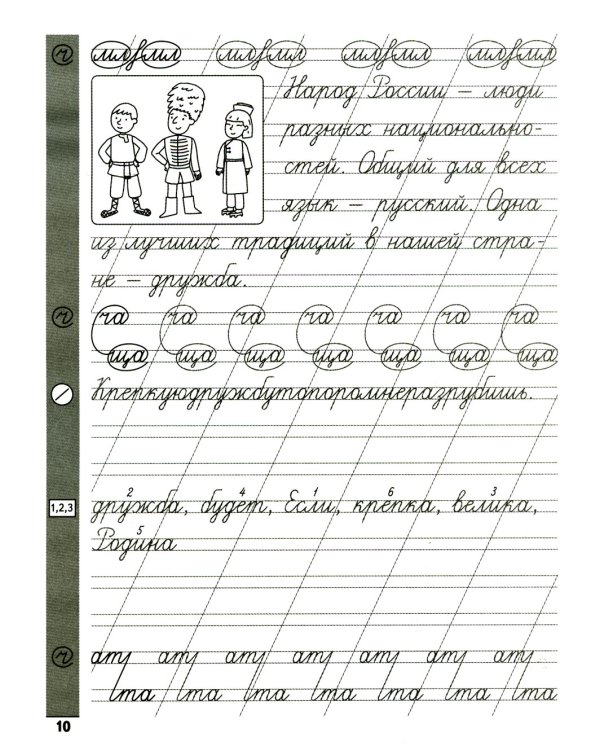 мл мл мл мл мл мл мл мл
Народ России – люди
разных национально-
стей. Общий для всех
язык – русский. Одна
из лучших традиций в нашей стра-
не – дружба.
ча ча ча ча ча ча ча
ща ща ща ща ща ща ща
Крепкуюдружбутопоромнеразрубишь.
1,2,3
2 4 1 6 3
дружба, будет, Если, крепка, велика,
5
Родина
ат ат ат ат ат ат ат
та та та та та та та
10